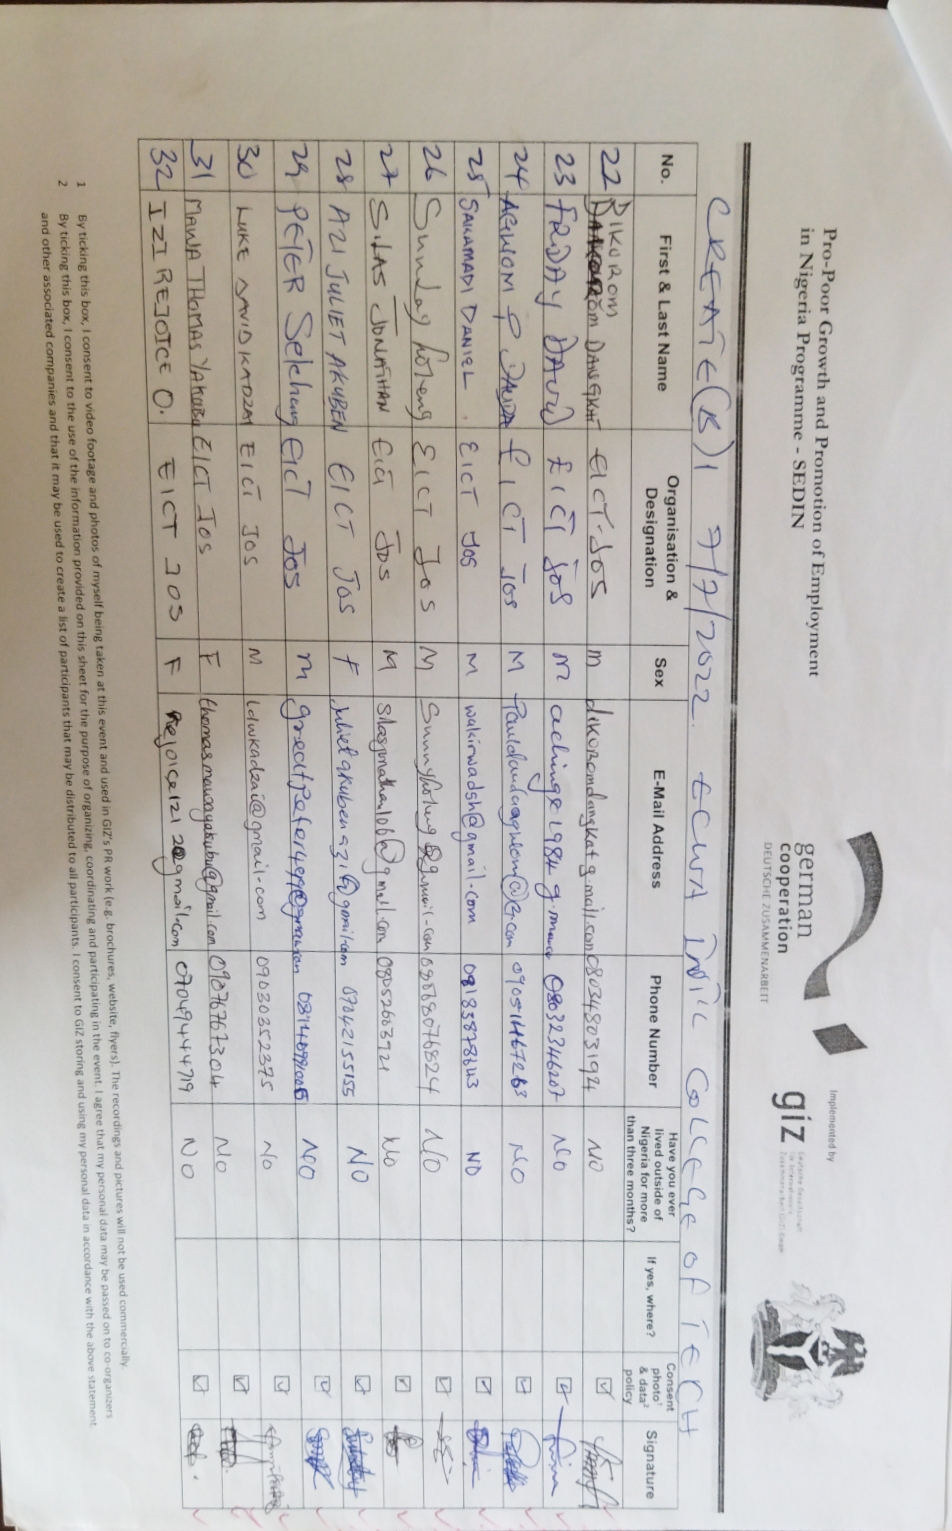 Pro-Poor Growth and Promotion of Employment
in Nigeria Programme - SEDIN
german
cooperation
DEUTSCHE ZUSAMMENARBEIT
Implemented by
giz Deutsche Gesellschaft
für Internationale
Zusammenarbeit (GIZ) GmbH
CREATE(B)1 7/7/2022. ECWA INT'L COLLEGE OF TECH
No. First & Last Name Organisation & Designation Sex E-Mail Address Phone Number Have you ever lived outside of Nigeria for more than three months? If yes, where? Consent photo¹ & data² policy Signature
22 DIKOROM DANGKAT EICT-JOS m dikoromdangkatg.mail.com 08034803194 NO
23 FRIDAY DAVID EICT JOS M achinge1984 08032346207 NO
24 AGWOM P DAUDA EICT JOS M Pauldaudaagwom@G.com 09051467263 NO
25 SAKAMADI DANIEL EICT JOS M wakirwadsh@gmail.com 08183878643 NO
26 Sunday EICT JOS M 08068076824 NO
27 SILAS JONATHAN EICT JOS M silasjonathan106@gmail.com 08052603721 NO
28 AZI JULIET AKUBEN EICT JOS F julietakubenazi@gmail.com 07042155155 NO
29 PETER EICT JOS m NO
30 LUKE DAVID KADZAI EICT JOS M ldwkadzai@gmail.com 09030352375 NO
31 MAWA THOMAS YAKUBU EICT JOS F thomasmawayakubu@gmail.com 09076767304 NO
32 IZI REJOICE O. EICT JOS F Rejoice1212@gmail.com 07049444719 NO
1 By ticking this box, I consent to video footage and photos of myself being taken at this event and used in GIZ's PR work (e.g. brochures, website, flyers). The recordings and pictures will not be used commercially.
2 By ticking this box, I consent to the use of the information provided on this sheet for the purpose of organizing, coordinating and participating in the event. I agree that my personal data may be passed on to co-organizers
and other associated companies and that it may be used to create a list of participants that may be distributed to all participants. I consent to GIZ storing and using my personal data in accordance with the above statement.